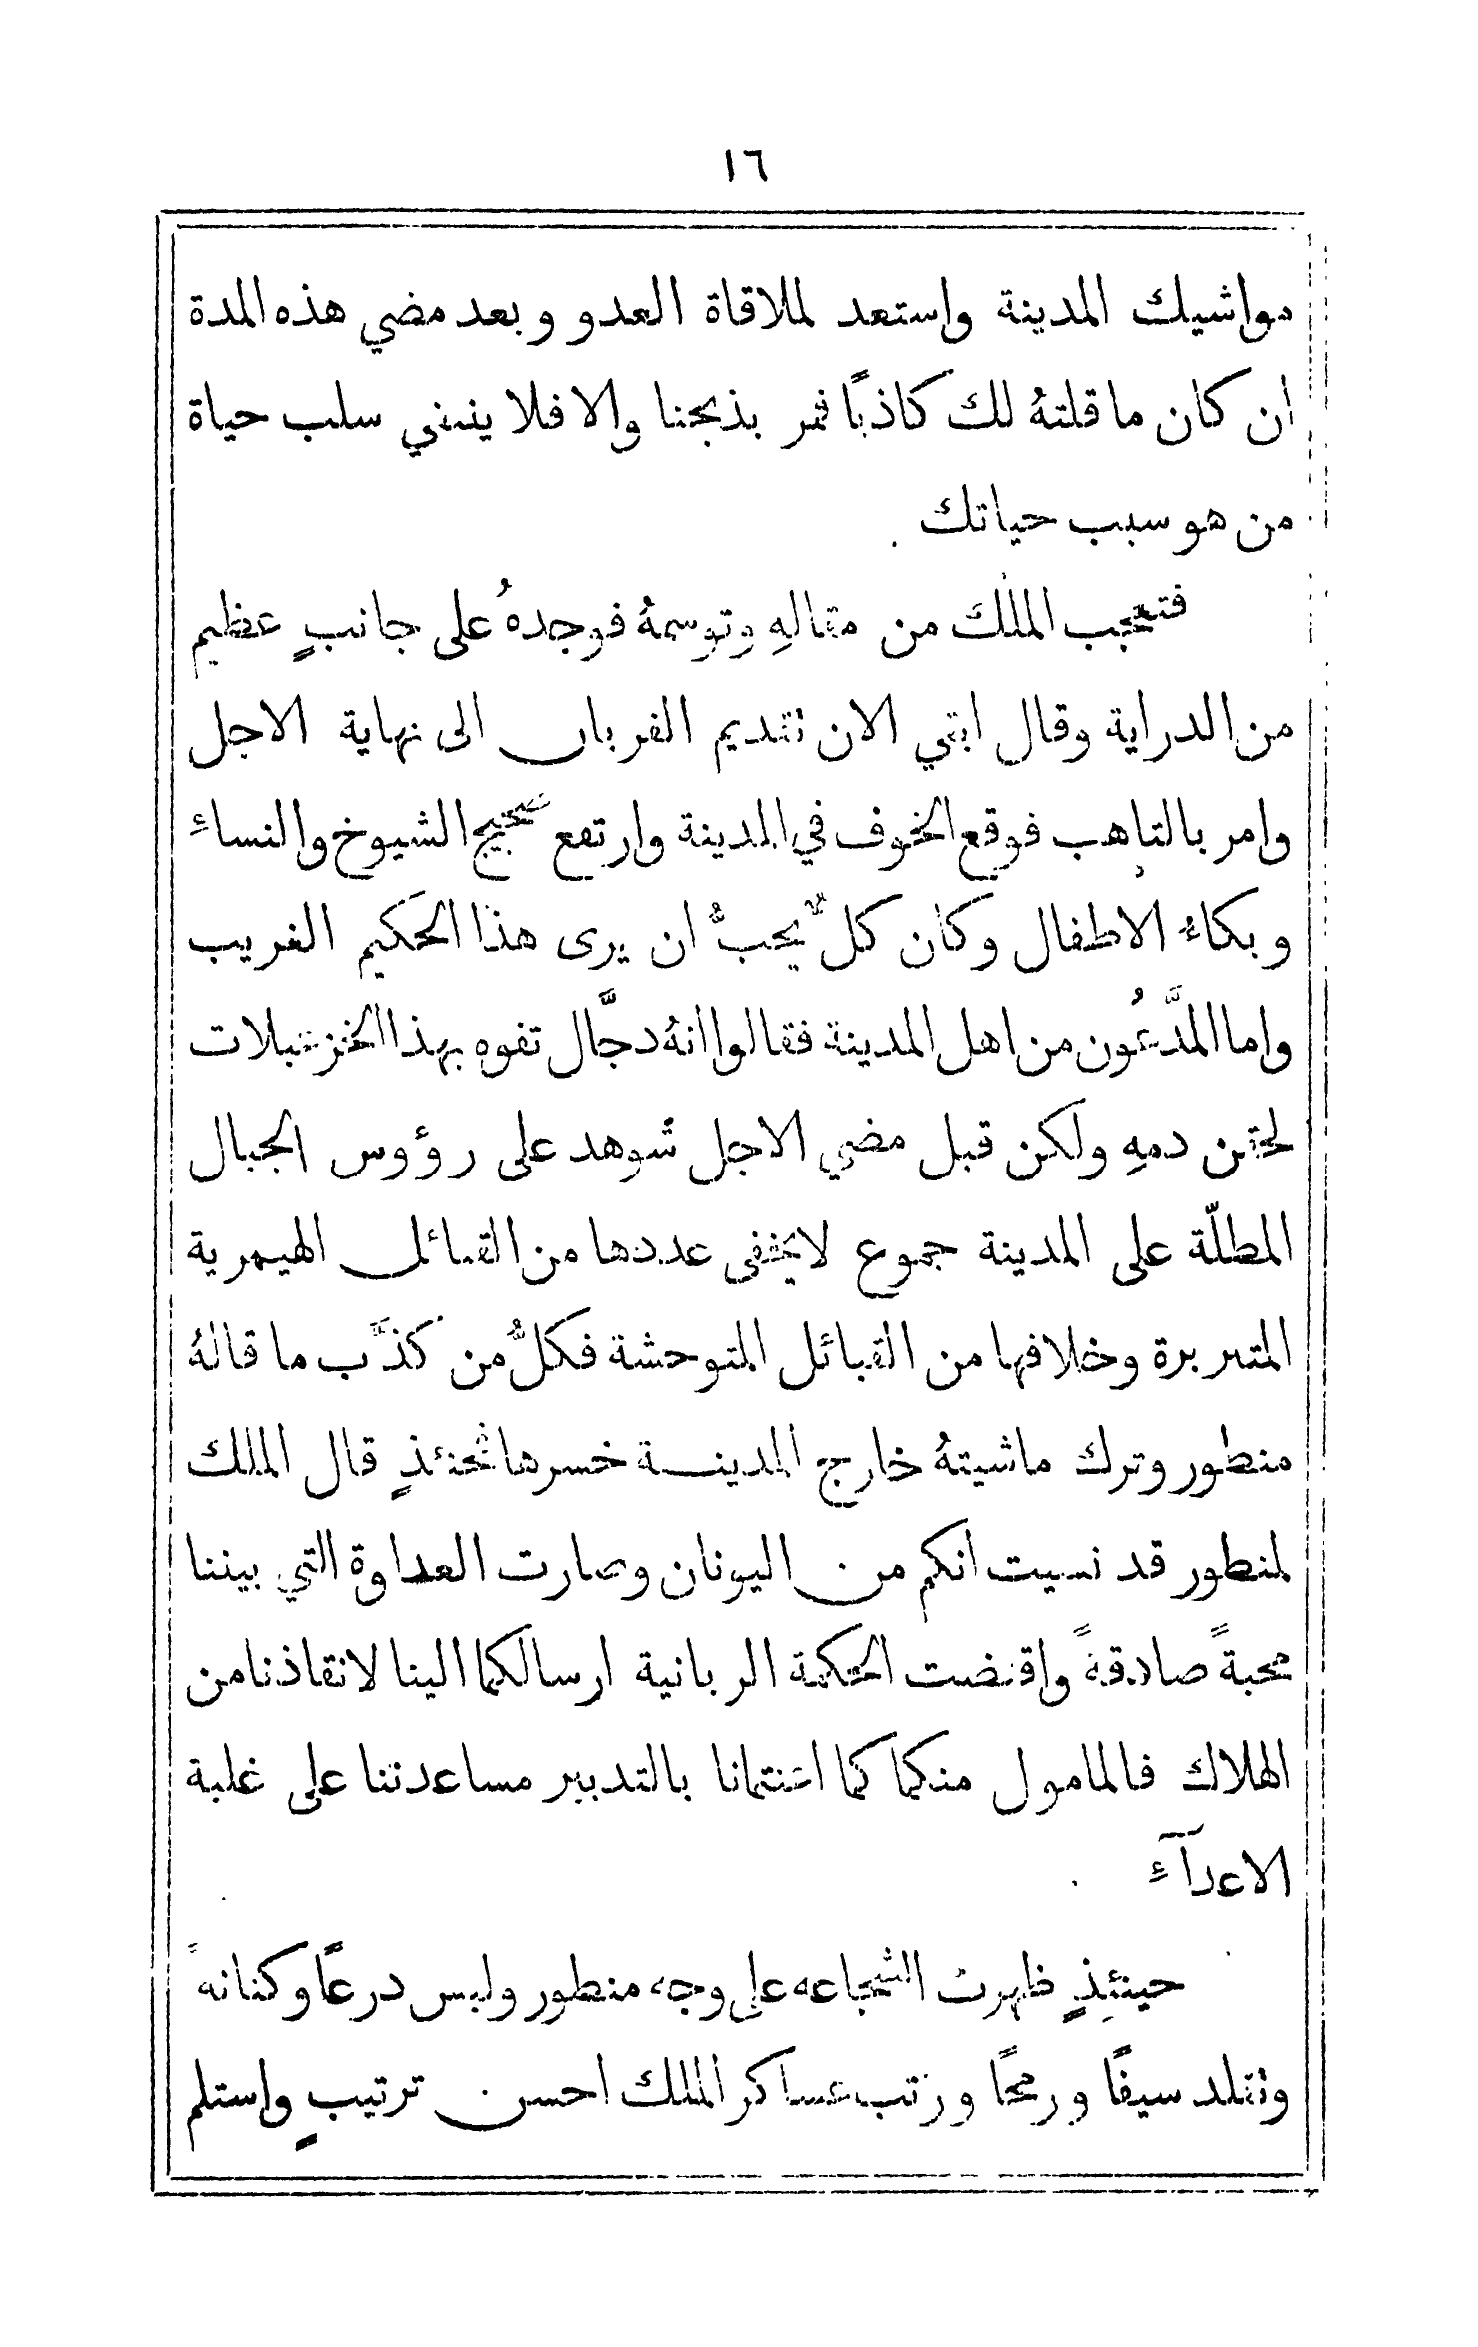 ١٦
مواشيك المدينة واستعد لملاقاة العدو وبعد مضي هذه المدة
ان كان ما قلتهُ لك كاذبًا فمر بذبحنا والا فلا ينبغي سلب حياة
من هو سبب حياتك
فتعجب الملك من مقالهِ وتوسمهُ فوجدهُ على جانبٍ عظيم
من الدراية وقال ابقي الان تقديم القربان الى نهاية الاجل
وامر بالتاهب فوقع الخوف في المدينة وارتفع ضجيج الشيوخ والنساءِ
وبكاءُ الاطفال وكان كلٌّ يحبُّ ان يرى هذا الحكيم الغريب
واما المدَّعُون من اهل المدينة فقالوا انهُ دجَّال تفوه بهذا الخزعبلات
لحقن دمهِ ولكن قبل مضي الاجل شوهد على رؤوس الجبال
المطلّة على المدينة جموع لا يخفى عددها من القبائل الهيمرية
المتبربرة وخلافها من القبائل المتوحشة فكلُّ من كذَّب ما قالهُ
منطور وترك ماشيتهُ خارج المدينة خسرها فحنئذٍ قال الملك
لمنطور قد نسيت انكم من اليونان وصارت العداوة التي بيننا
محبةً صادقةً واقتضت الحكمة الربانية ارسالكما الينا لانقاذنا من
الهلاك فالمامول منكما كما اغنتمانا بالتدبير مساعدتنا على غلبة
الاعدآءِ
حينئذٍ ظهرت الشجاعه على وجه منطور ولبس درعًا وكنانهً
وتقلد سيفًا ورمحًا ورتب عساكر الملك احسن ترتيبٍ واستلم